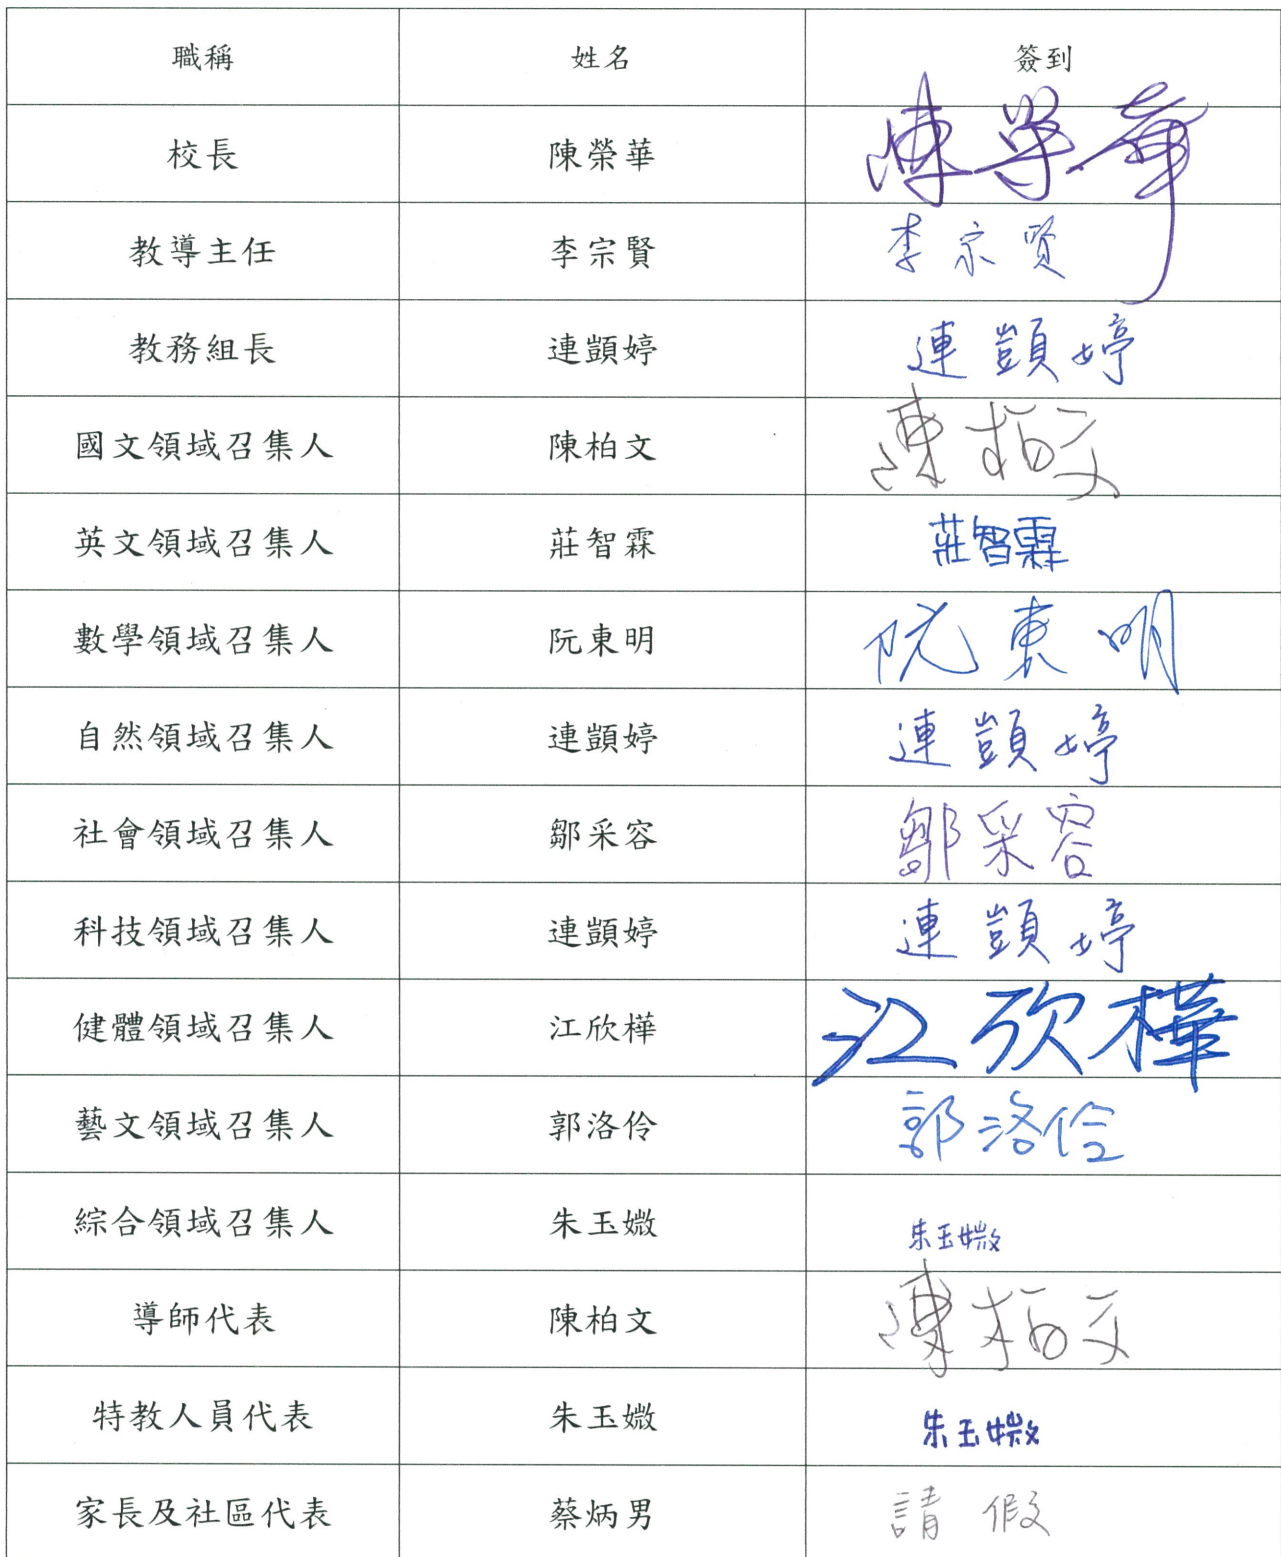 職稱 姓名 簽到
校長 陳榮華 陳榮華
教導主任 李宗賢 李宗贤
教務組長 連顗婷 連顗婷
國文領域召集人 陳柏文 陳柏文
英文領域召集人 莊智霖 莊智霖
數學領域召集人 阮東明 阮東明
自然領域召集人 連顗婷 連顗婷
社會領域召集人 鄒采容 鄒采容
科技領域召集人 連顗婷 連顗婷
健體領域召集人 江欣樺 江欣樺
藝文領域召集人 郭洛伶 郭洛伶
綜合領域召集人 朱玉媺 朱玉媺
導師代表 陳柏文 陳柏文
特教人員代表 朱玉媺 朱玉媺
家長及社區代表 蔡炳男 請假